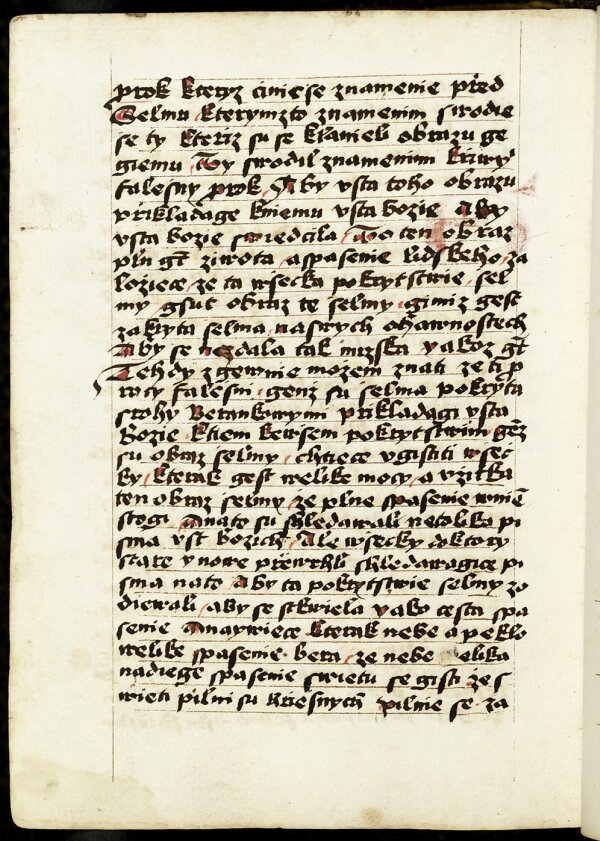 prok kteryz ciniese znamenie před
Selmu kterymzto znamenim swodie
se ty kteriz su se klanieli obrazu ge
giemu Ay swodil znamenim kriwy
falesny prok Aby vsta toho obrazu
prikladage kniemu vsta bozie aby
vsta bozie swiedcila To ten obraz
pln gt ziwota aspasenie lidskeho za
loziece ze ta wsecka pokrytstwie sel
my gsut obraz te selmy gimiz gest
zakryta selma naswych ohawnostech
Aby se nezdala tak mrska yakoz gt
Tehdy zgewnie mozem znati ze ti p
rocy falesni genz su selma pokryta
srohy Berankowymi prikladagi vsta
Bozie ktiem kewsem pokrytstwim genz
su obraz selmy chtiece vgistiti wsec
ky kterak gest welike mocy a vzitka
ten obraz selmy ze plne spasenie wnie
stogi Anato su shledawali netoliko pi
sma vst bozich Ale wsecky doktory
stare y nowe přewrhli shledawagice pi
sma nato aby ta pokrytstwie selmy zo
diewali aby se stkwiela yako cesta spa
senie Anaywiece kterak nebe a peklo
welike spasenie bera ze nebe elika
nadiege spasenie swietu se gisti ze s
wieti pilni su hriesnych pilnie se za